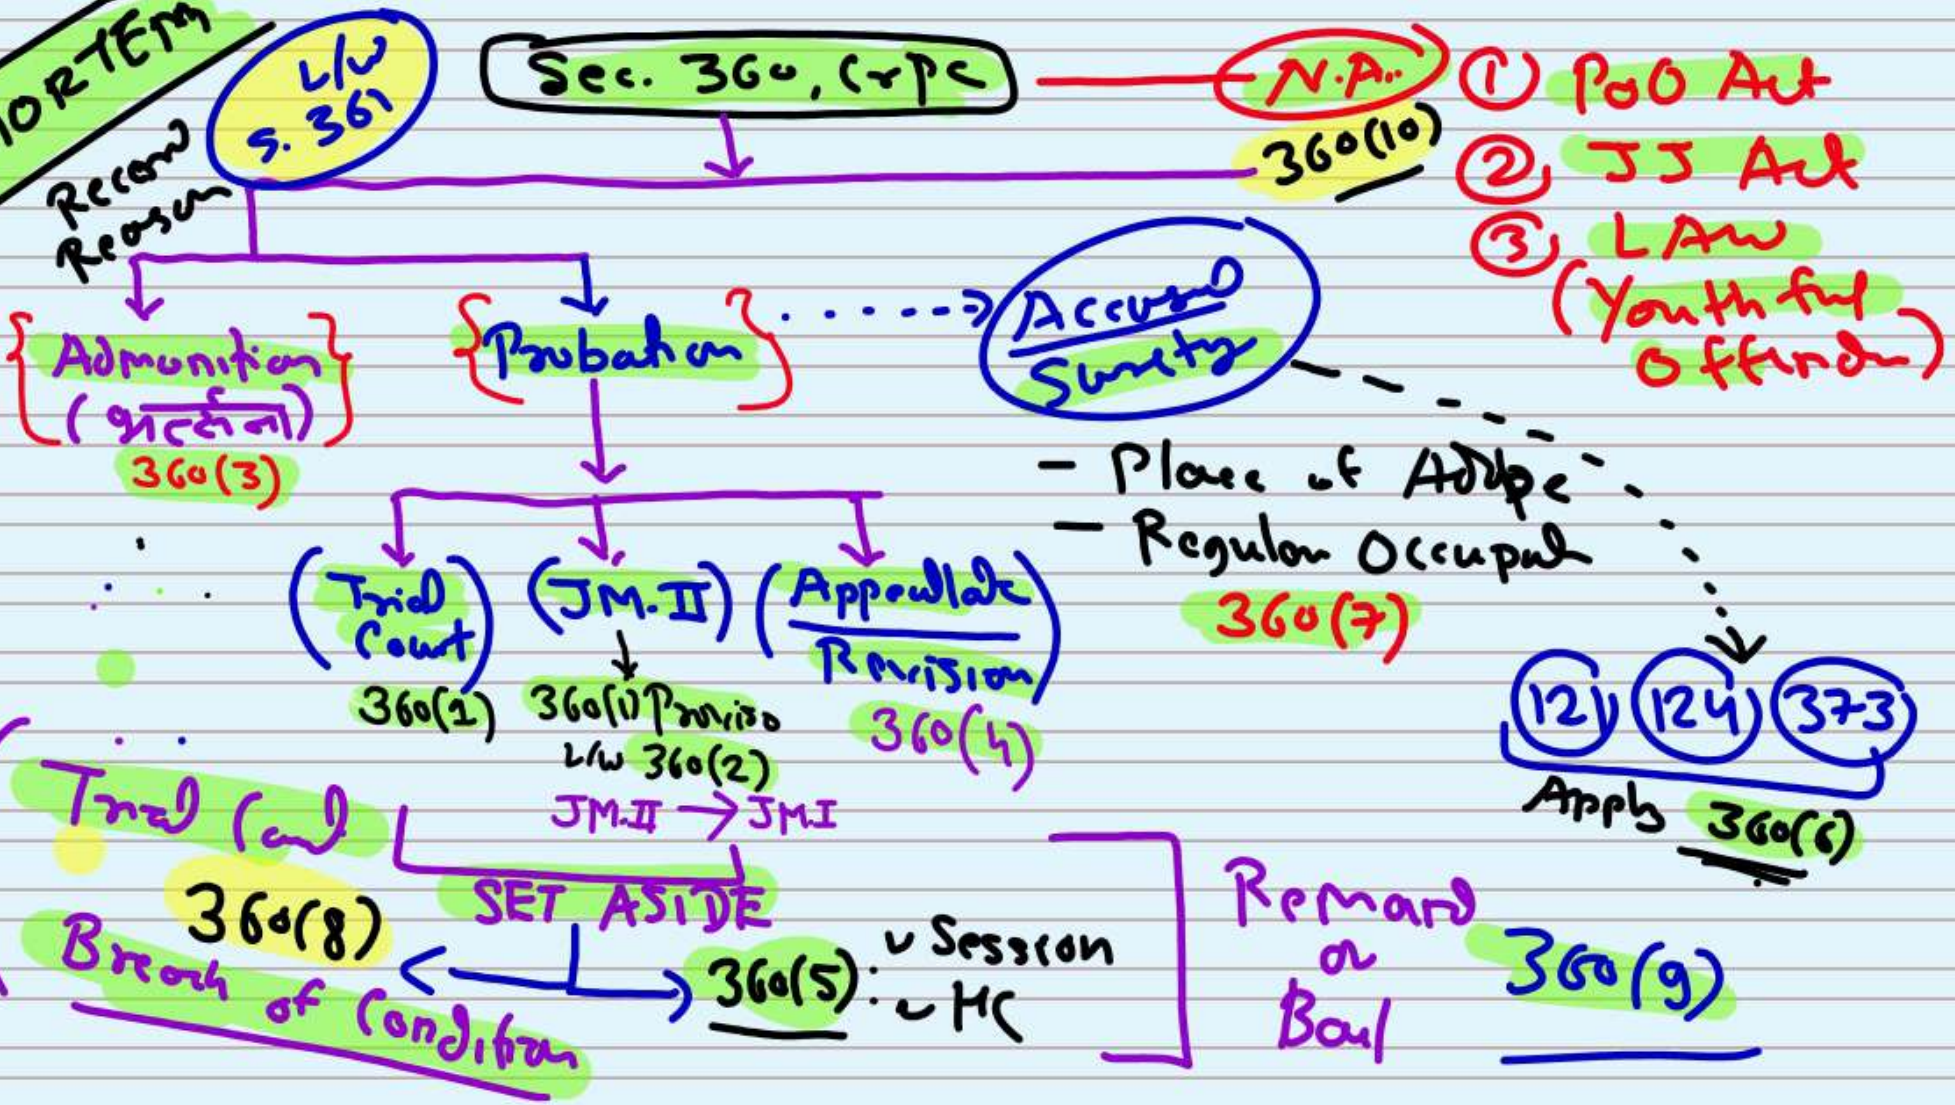 L/W
S. 361
Record
Reason
Sec. 360, CrPC
N.A.
360(10)
① PoO Act
② JJ Act
③ LAW
(Youthful
Offender)
{Admonition}
(भर्त्सना)
360(3)
{Probation}
Accused
Surety
- Place of Abode
- Regular Occupat
360(7)
(Trial
Court)
360(1)
(JM.II)
360(1) Proviso
L/W 360(2)
JM.II → JM.I
(Appellate
Revision)
360(4)
121 124 373
Apply 360(6)
Trial Court
360(8)
Breach of Condition
SET ASIDE
360(5): Session
HC
Remand
or
Bail
360(9)